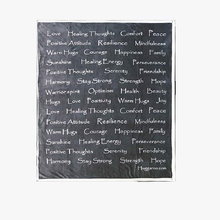 Love Healing Thoughts Comfort Peace
Positive Attitude Resilience Mindfulness
Warm Hugs Courage Happiness Family
Sunshine Healing Energy Perseverance
Positive Thoughts Serenity Friendship
Harmony Stay Strong Strength Hope
Warrior spirit Optimism Health Beauty
Hugs Love Positivity Warm Hugs Joy
Love Healing Thoughts Comfort Peace
Positive Attitude Resilience Mindfulness
Warm Hugs Courage Happiness Family
Sunshine Healing Energy Perseverance
Positive Thoughts Serenity Friendship
Harmony Stay Strong Strength Hope